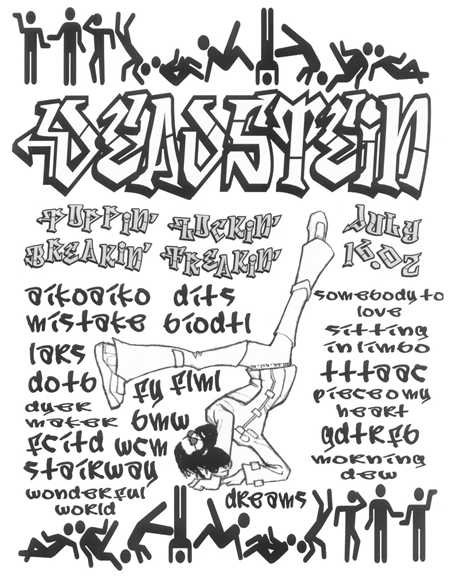 DEADSTEiN
POPPiN' LOCKiN'
BREAKiN' FREAKiN'
JULY
16.02
aikoaiko dits
mistake biodtl
lars
dotb fy flml
dyer
maker bmw
fcitd wcm
stairway
wonderful
world
dreams
somebody to
love
sitting
in limbo
tttaac
piece o my
heart
gdtrfb
morning
dew